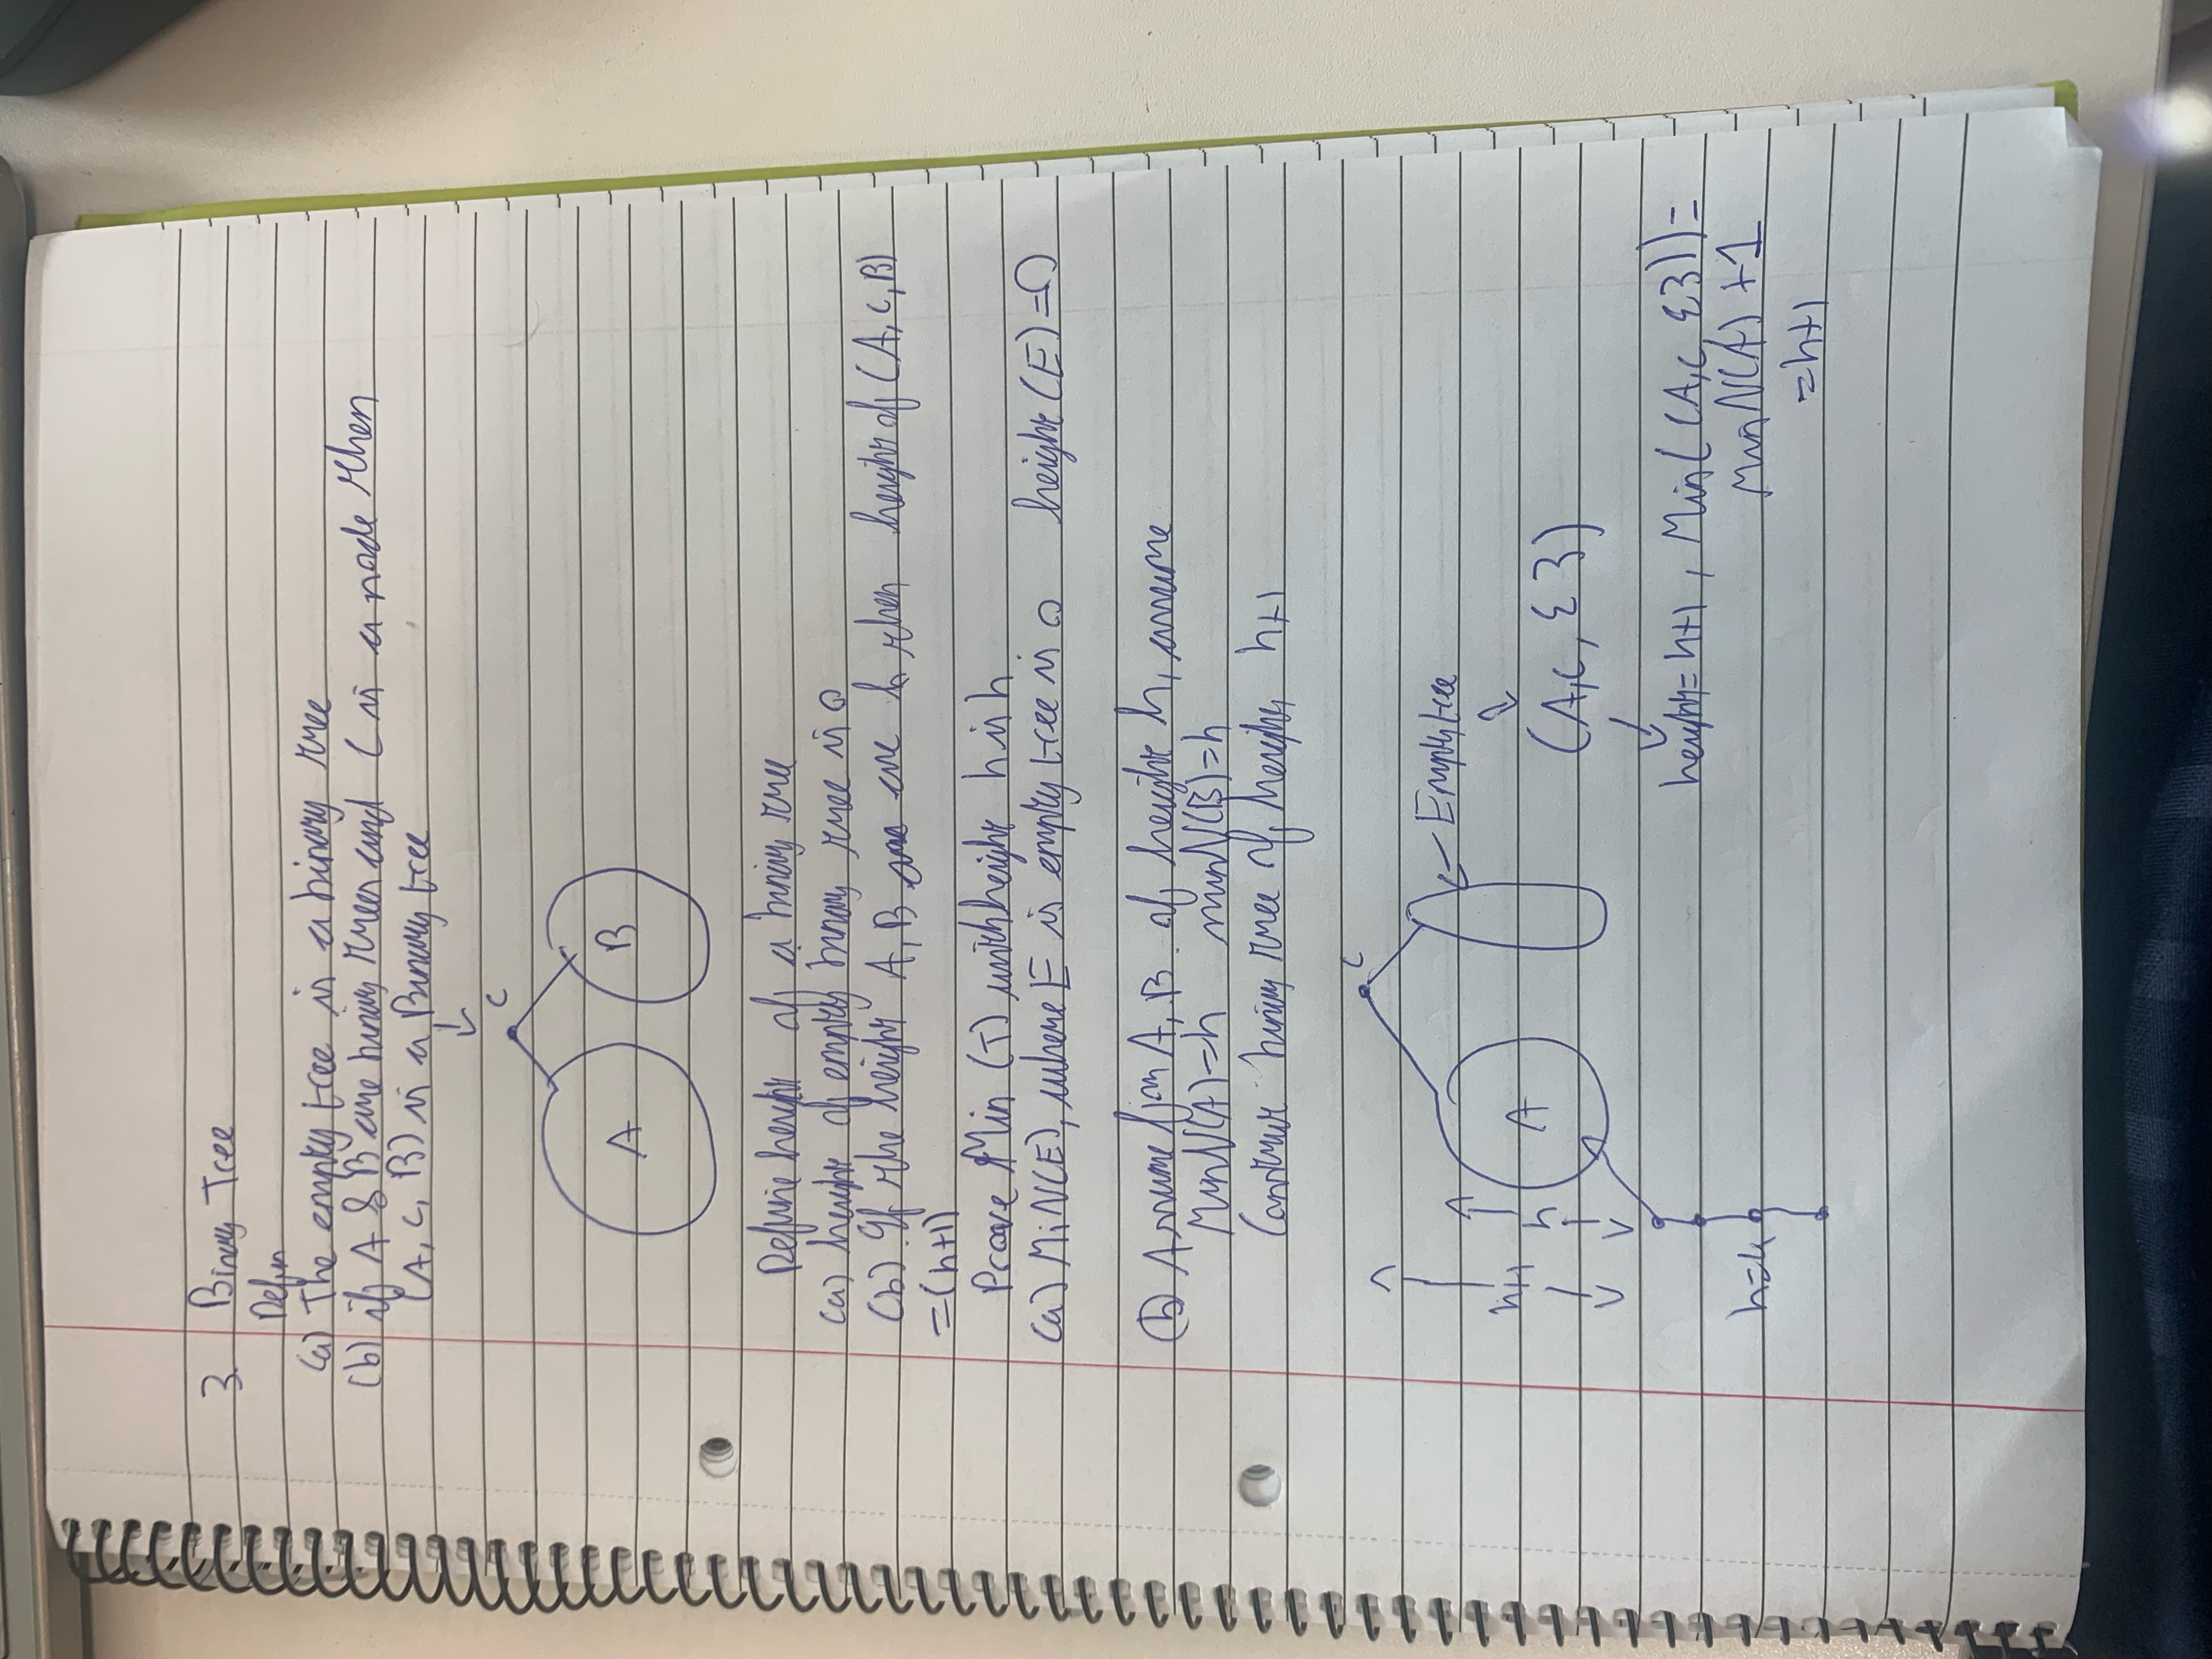 3. Binary Tree
Defn
(a) The empty tree is a binary tree
(b) if A & B are binary trees and C is a node then
(A, C, B) is a Binary tree
C
A B
Define height of a binary tree
(a) height of empty binary tree is 0
(b) If the height A, B are h then height of (A, C, B)
=(h+1)
Prove Min (T) with height h is h
(a) MiN(E), where E is empty tree is 0 height (E)=0
(b) Assume for A, B of height h, assume
MinN(A)=h minN(B)=h
Construct binary tree of height h+1
C
Empty tree
h+1 h A
(A,C, {})
height=h+1, Min((A,C, {}))=
MinN(A) +1
h=4
=h+1